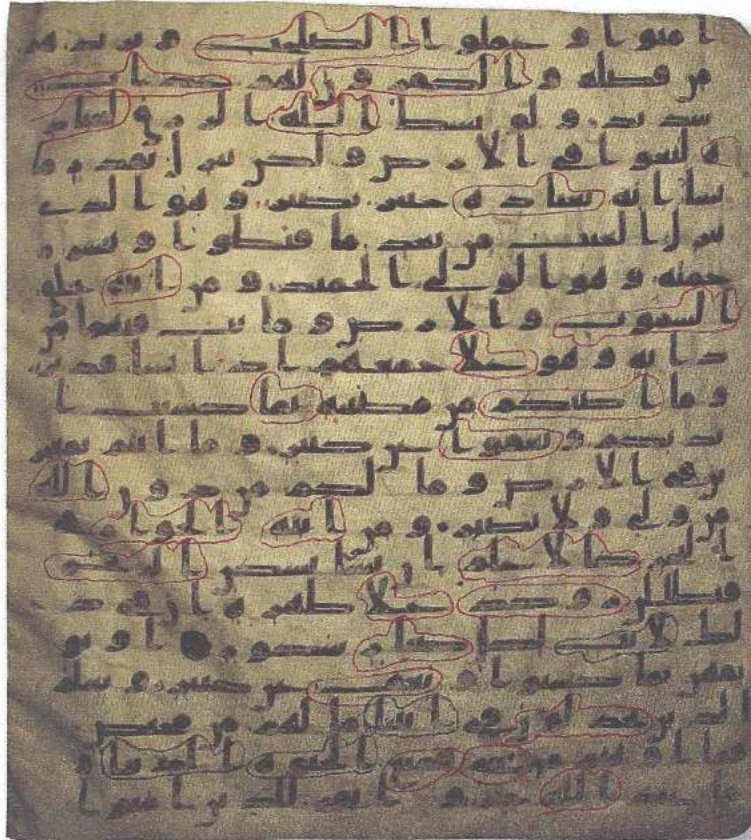 امنوا و عملوا الصلحت و يزيدهم
من فضله و الكفرون لهم عذاب
شديد و لو بسط الله الرزق لعباد
ه لبغوا في الارض و لكن ينزل بقدر ما
يشا انه بعباده خبير بصير و هو الذي
ينزل الغيث من بعد ما قنطوا و ينشر ر
حمته و هو الولي الحميد و من ايته خلق
السموت و الارض و ما بث فيهما من
دابه و هو على جمعهم اذا يشا قدير
و ما اصبكم من مصيبه بما كسبت ا
يديكم و يعفوا عن كثير و ما انتم بمعجز
ين في الارض و ما لكم من دون الله
من ولي و لا نصير و من ايته الجوار في
البحر كالاعلم ان يشا يسكن الريح
فيظللن رواكد على ظهره ان في ذ
لك لايت لكل صبار شكور او يو
بقهن بما كسبوا و يعف عن كثير و يعلم
الذين يجدلون في ايتنا ما لهم من محيص
فما اوتيتم من شي فمتع الحيوه الدنيا و
ما عند الله خير و ابقى للذين امنوا